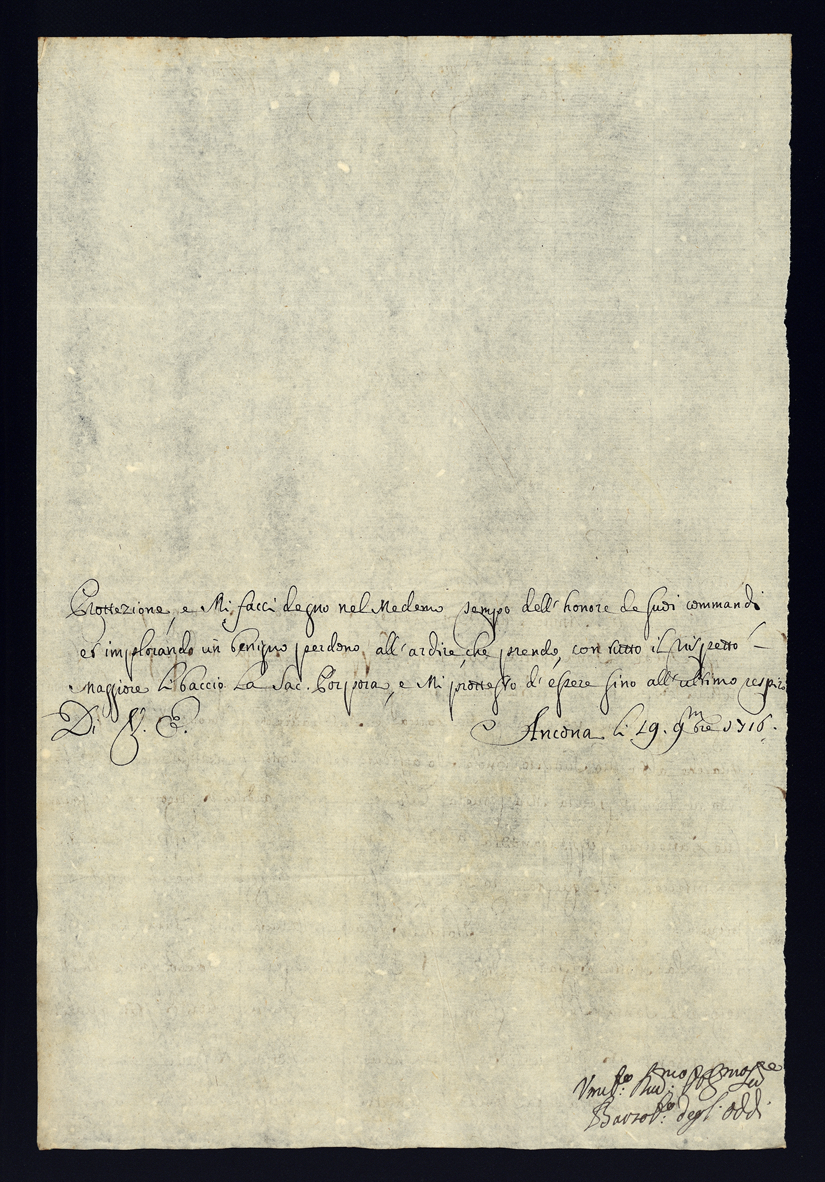 Prottezione, e Mi facci degno nel Medemo tempo dell'honore de suoi commandi
et implorando un benigno perdono all'ardire, che prendo, con tutto il rispetto
maggiore li baccio La Sac. Porpora, e Mi prottesto d'essere sino all'ultimo respiro
Di V. E. Ancona li 19. 9mbre 1716.
Bartol. degl' Oddi